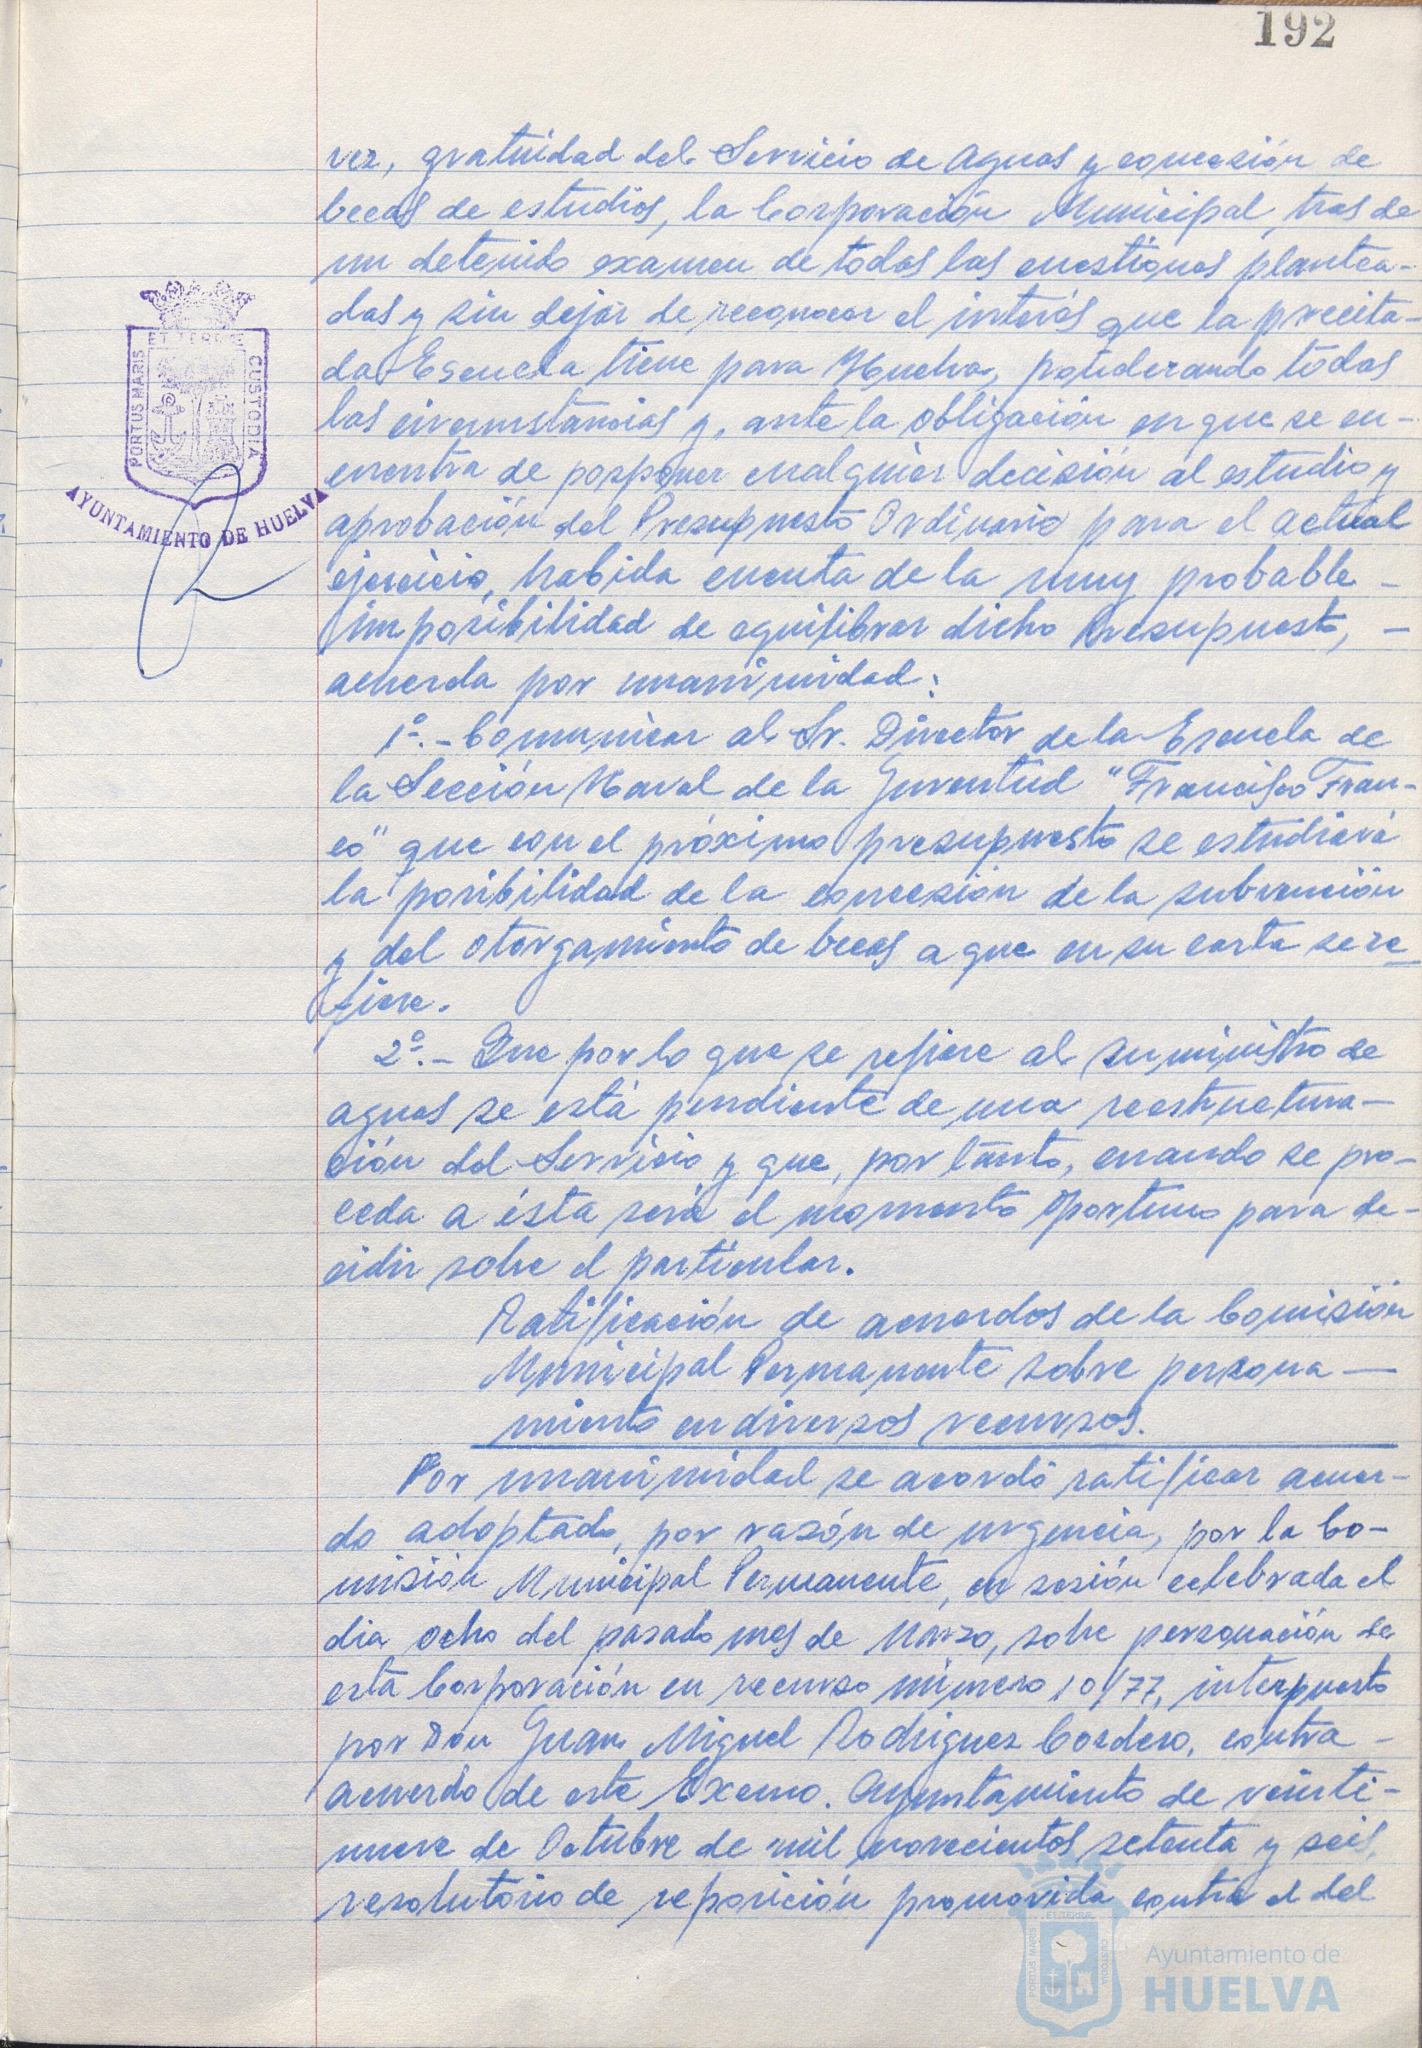 192
vez, gratuidad del Servicio de Aguas y concesión de
becas de estudios, la Corporación Municipal, tras de
un detenido examen de todas las cuestiones plantea-
das y sin dejar de reconocer el interés que la precita-
da Escuela tiene para Huelva, ponderando todas
las circunstancias y, ante la obligación en que se en-
cuentra de posponer cualquier decisión al estudio y
aprobación del Presupuesto Ordinario para el actual
ejercicio, habida cuenta de la muy probable -
imposibilidad de equilibrar dicho Presupuesto, -
acuerda por unanimidad:
1º.- Comunicar al Sr. Director de la Escuela de
la Sección Naval de la Juventud "Francisco Fran-
co" que con el próximo presupuesto se estudiará
la posibilidad de la concesión de la subvención
y del otorgamiento de becas a que en su carta se re-
fiere.
2º.- Que por lo que se refiere al suministro de
aguas se está pendiente de una reestructura-
ción del Servicio y que, por tanto, cuando se pro-
ceda a ésta será el momento oportuno para de-
cidir sobre el particular.
Ratificación de acuerdos de la Comisión
Municipal Permanente sobre persona-
miento en diversos recursos.
Por unanimidad se acordó ratificar acuer-
do adoptado, por razón de urgencia, por la Co-
misión Municipal Permanente, en sesión celebrada el
dia ocho del pasado mes de Marzo, sobre personación de
esta Corporación en recurso número 10/77, interpuesto
por Don Juan Miguel Rodriguez Cordero, contra -
acuerdo de este Excmo. Ayuntamiento de veinti-
nueve de Octubre de mil novecientos setenta y seis,
resolutorio de reposición promovida contra el del
PORTUS MARIS
ET TERRE
CUSTODIA
AYUNTAMIENTO DE HUELVA
PORTUS MARIS
ET TERRE
CUSTODIA
Ayuntamiento de
HUELVA